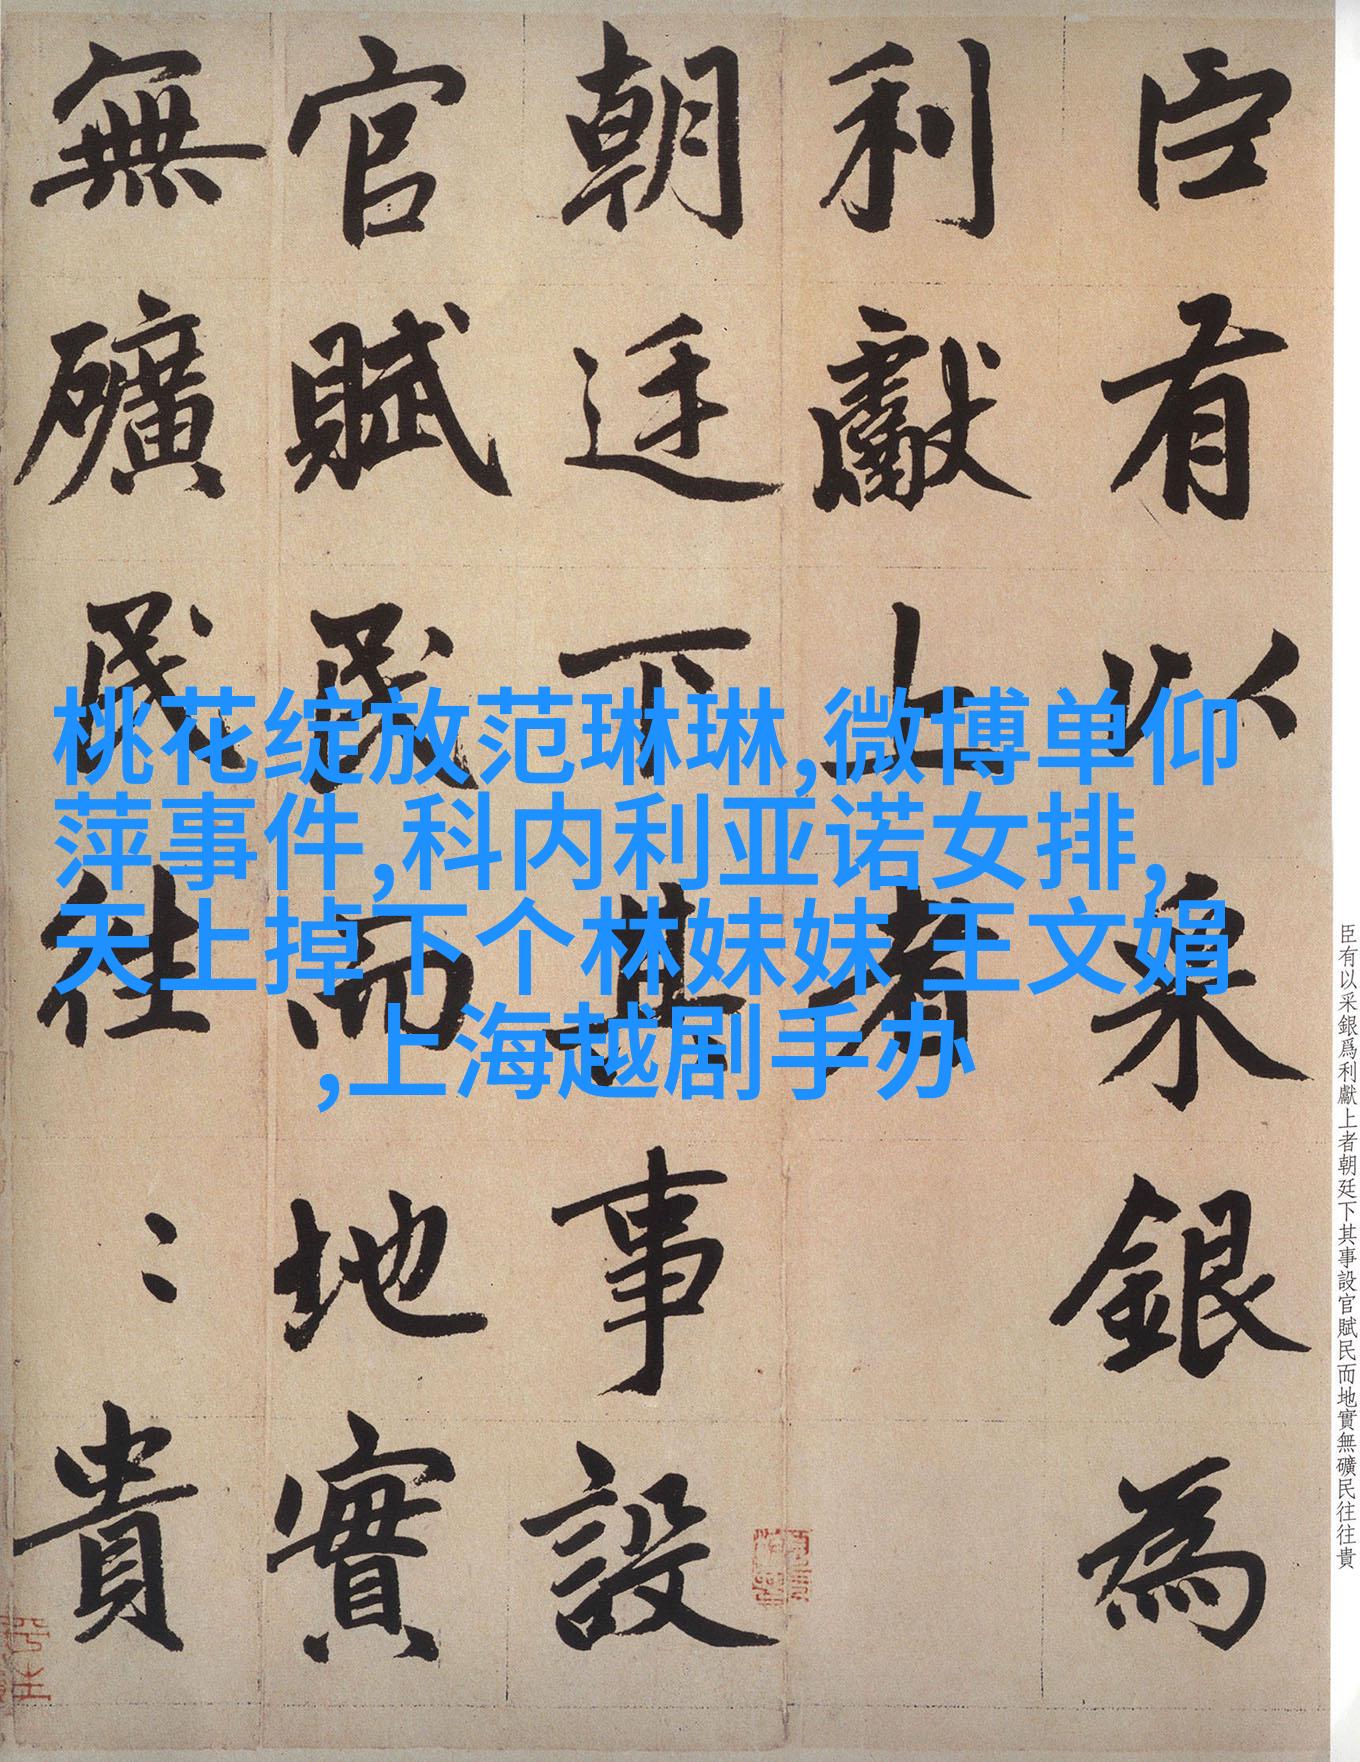 臣有以采銀為
利獻上者
朝廷下其事設
官賦民而地實
無礦民往〻貴
臣有以采銀爲利獻上者朝廷下其事設官賦民而地實無礦民往往貴
桃花绽放范琳琳,微博单仰
萍事件,科内利亚诺女排,
天上掉下个林妹妹 王文娟
,上海越剧手办